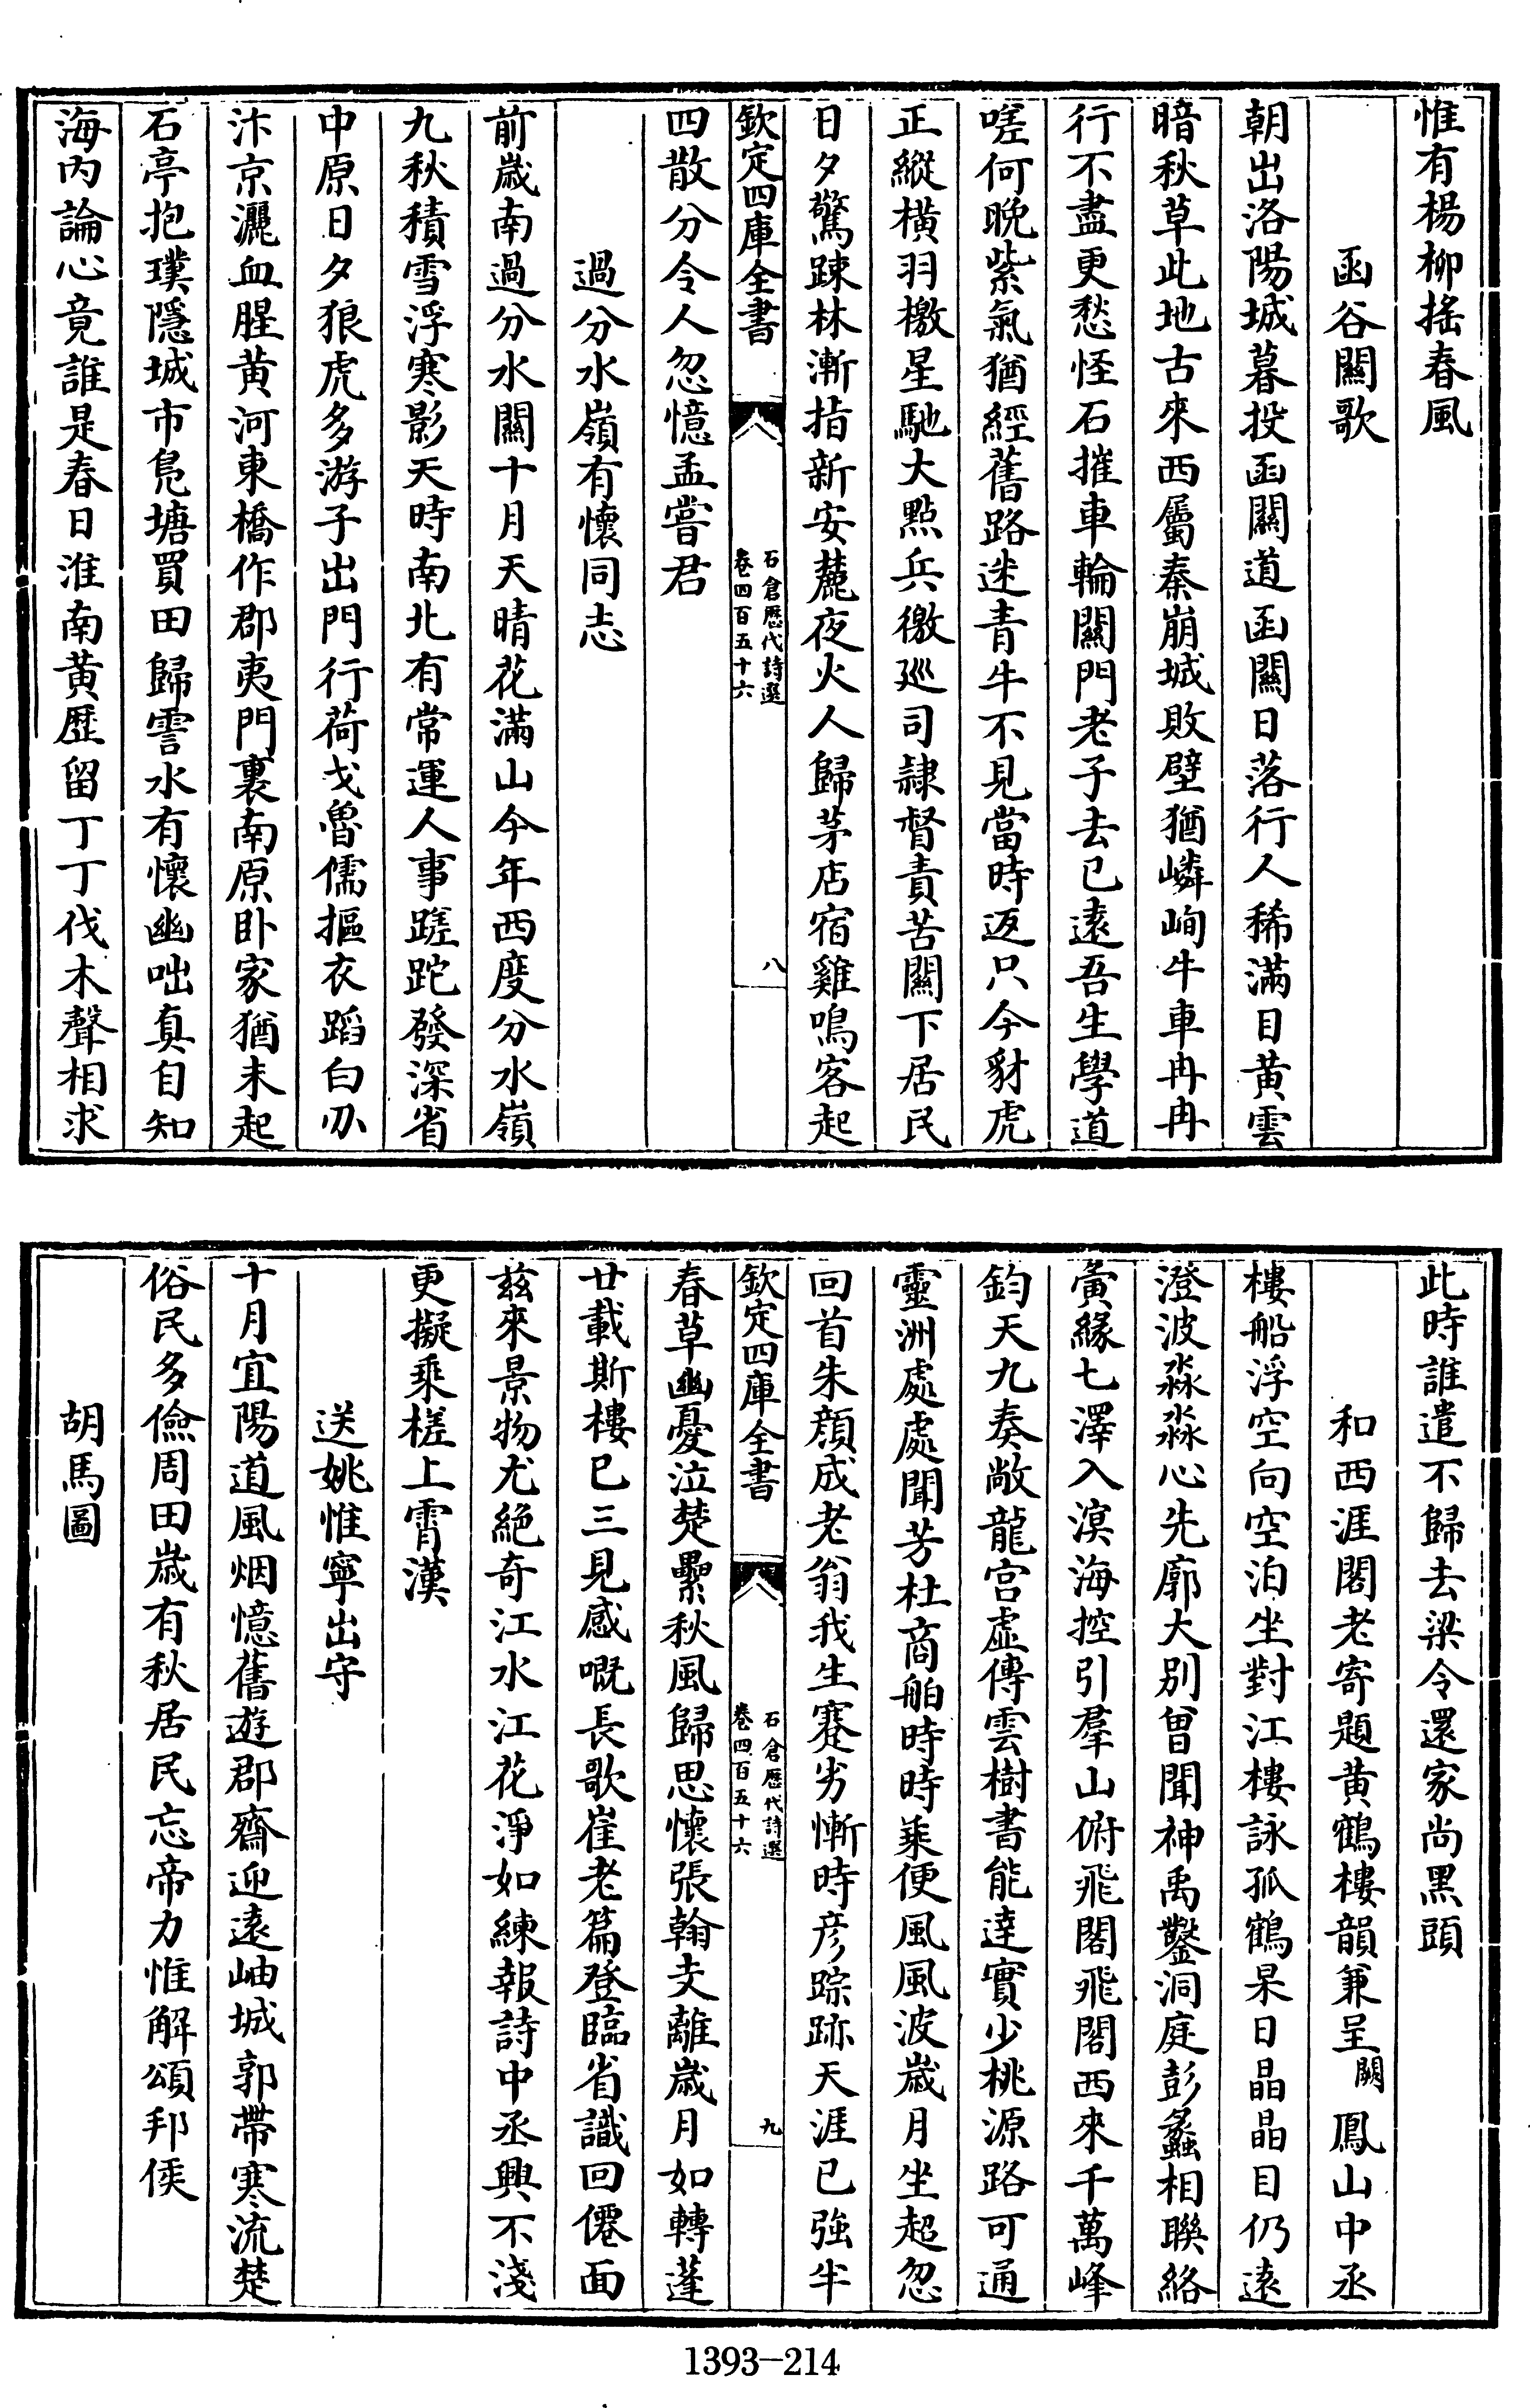 惟有楊柳搖春風
函谷關歌
朝出洛陽城暮投函關道函關日落行人稀滿目黃雲
暗秋草此地古來西屬秦崩城敗壁猶嶙峋牛車冉冉
行不盡更愁怪石摧車輪關門老子去已遠吾生學道
嗟何晚紫氣猶經舊路迷青牛不見當時返只今豺虎
正縱橫羽檄星馳大點兵徼廵司隷督責苦關下居民
日夕驚踈林漸指新安麓夜火人歸茅店宿雞鳴客起
欽定四庫全書
石倉歷代詩選
卷四百五十六
八
四散分令人忽憶孟嘗君
過分水嶺有懷同志
前歲南過分水關十月天晴花滿山今年西度分水嶺
九秋積雪浮寒影天時南北有常運人事蹉跎發深省
中原日夕狼虎多游子出門行荷戈魯儒摳衣蹈白刃
汴京灑血腥黃河東橋作郡夷門裏南原卧家猶未起
石亭抱璞隱城市凫塘買田歸霅水有懷幽咄真自知
海內論心竟誰是春日淮南黃歷留丁丁伐木聲相求
此時誰遣不歸去梁令還家尚黑頭
和西涯閣老寄題黃鶴樓韻兼呈闕鳳山中丞
樓船浮空向空泊坐對江樓詠孤鶴杲日晶晶目仍遠
澄波淼淼心先廓大別曾聞神禹鑿洞庭彭蠡相聯絡
夤緣七澤入溟海控引羣山俯飛閣飛閣西來千萬峰
鈞天九奏敞龍宮虛傳雲樹書能達實少桃源路可通
靈洲處處聞芳杜商舶時時乘便風風波歲月坐超忽
回首朱顏成老翁我生蹇劣慚時彥踪跡天涯已強半
欽定四庫全書
石倉歷代詩選
卷四百五十六
九
春草幽憂泣楚纍秋風歸思懷張翰支離歲月如轉蓬
廿載斯樓已三見感嘅長歌崔老篇登臨省識回僊面
茲來景物尤絕奇江水江花淨如練報詩中丞興不淺
更擬乘槎上霄漢
送姚惟寧出守
十月宜陽道風烟憶舊遊郡齋迎遠岫城郭帶寒流楚
俗民多儉周田歲有秋居民忘帝力惟解頌邦侯
胡馬圖
1393-214